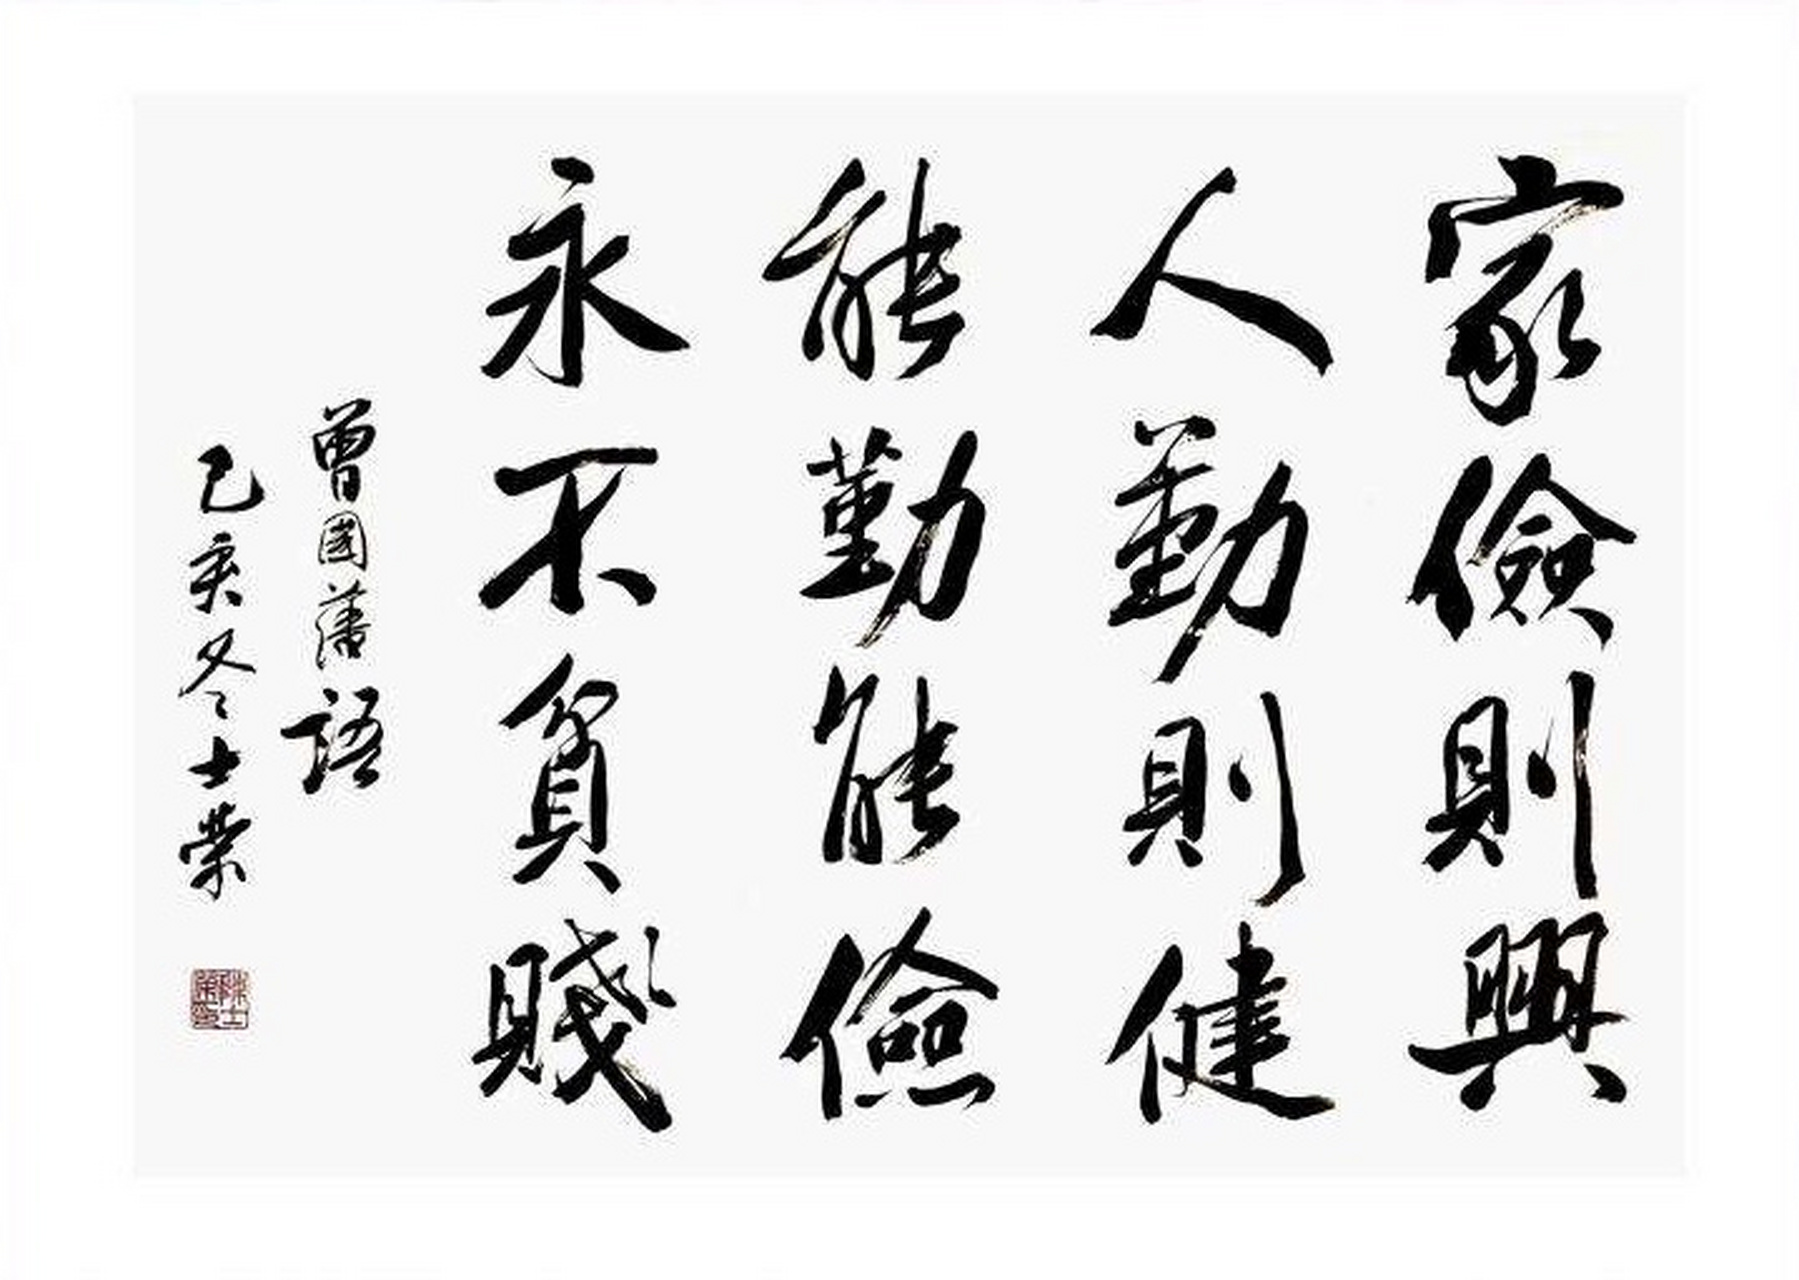 家儉則興
人勤則健
能勤能儉
永不貧賤
曾國藩語
己亥冬士榮
陳士榮印